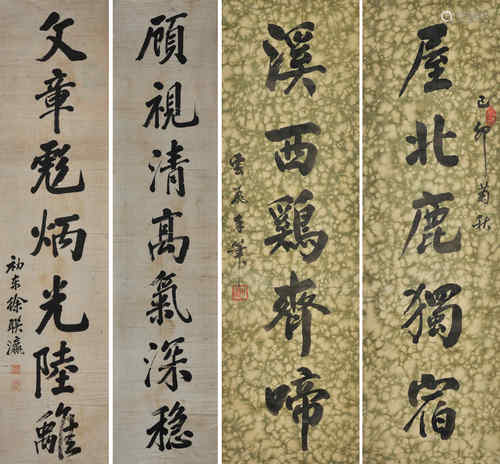 屋北鹿獨宿
己卯菊秋
溪西鷄齊啼
顧視清高氣深穩
文章彪炳光陸離
初東徐聯瀛